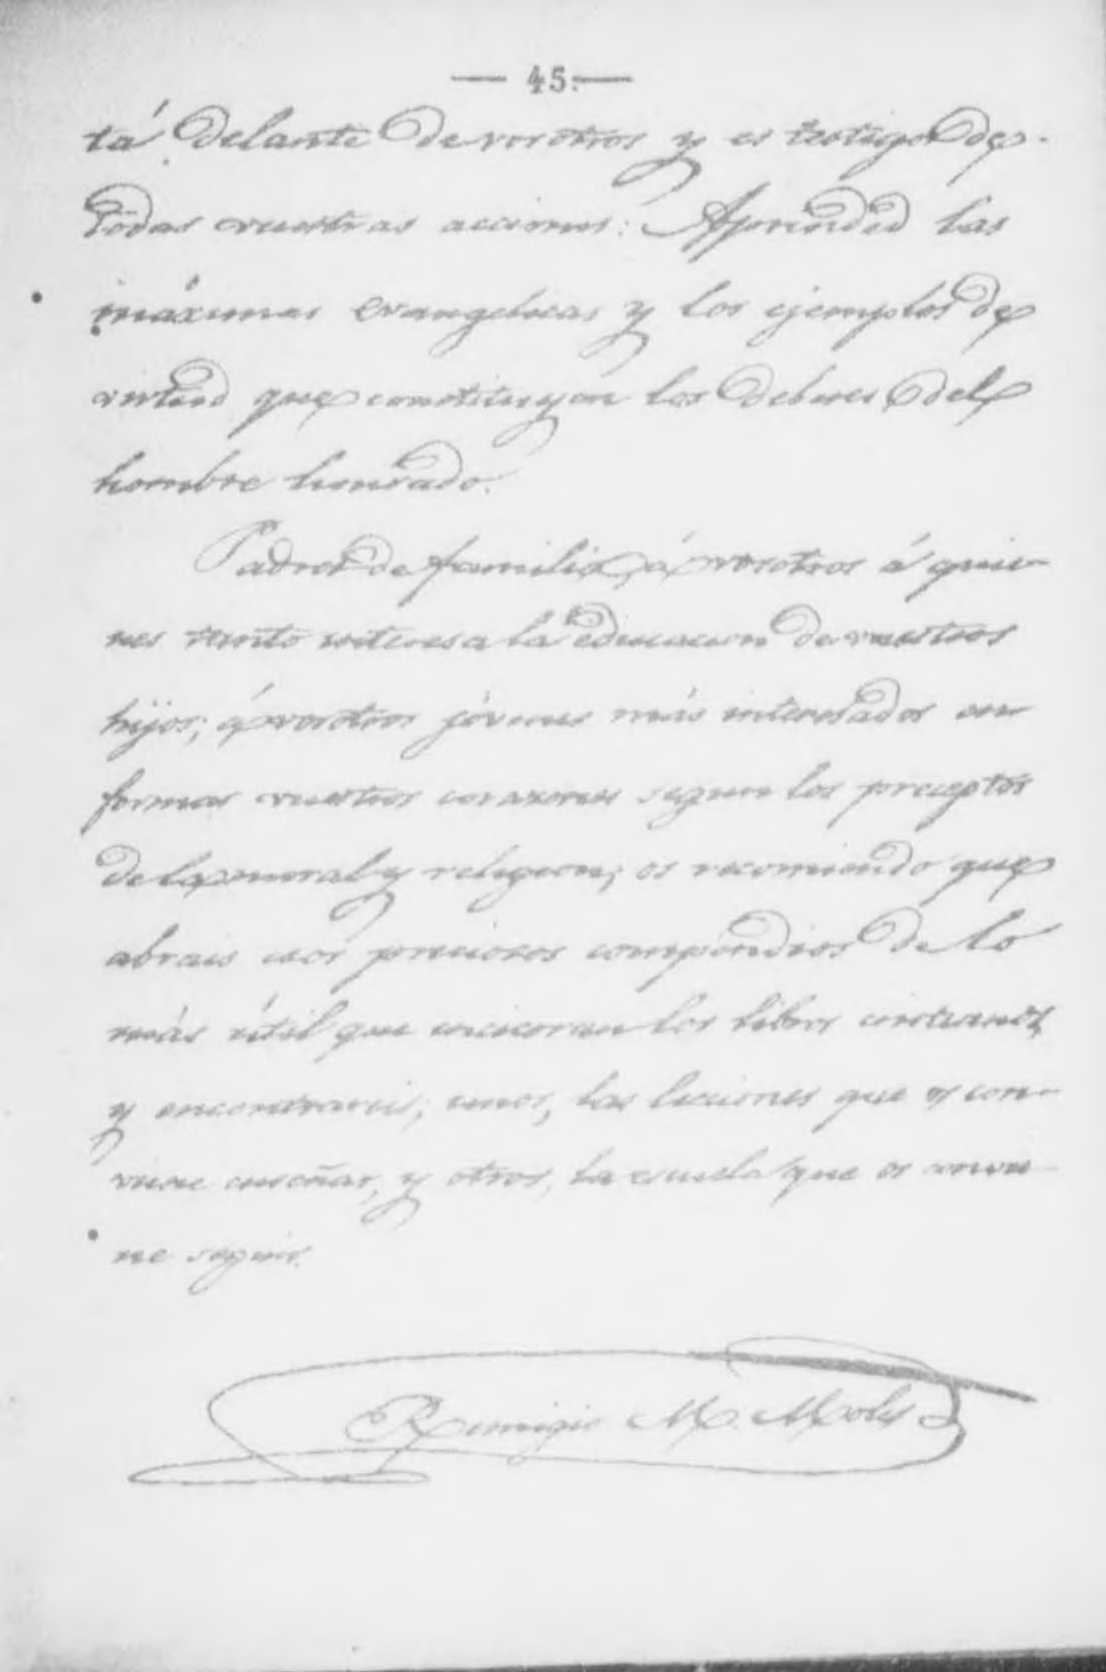 — 45. —
tá delante de vosotros y es testigo de
todas vuestras acciones: Aprended las
máximas evangelicas y los ejemplos de
virtud que constituyen los deberes del
hombre honrado.
Padres de familia, á vosotros á quie-
nes tanto interesa la educacion de vuestros
hijos; á vosotros jóvenes más interesados en
formar vuestros corazones segun los preceptos
de la moral y religion; os recomiendo que
abrais esos preciosos compendios de lo
más útil que encierran los libros cristianos,
y encontrareis; unos, las lecciones que os con-
viene enseñar, y otros, la escuela que os convie-
ne seguir.
Remigio M. Molés